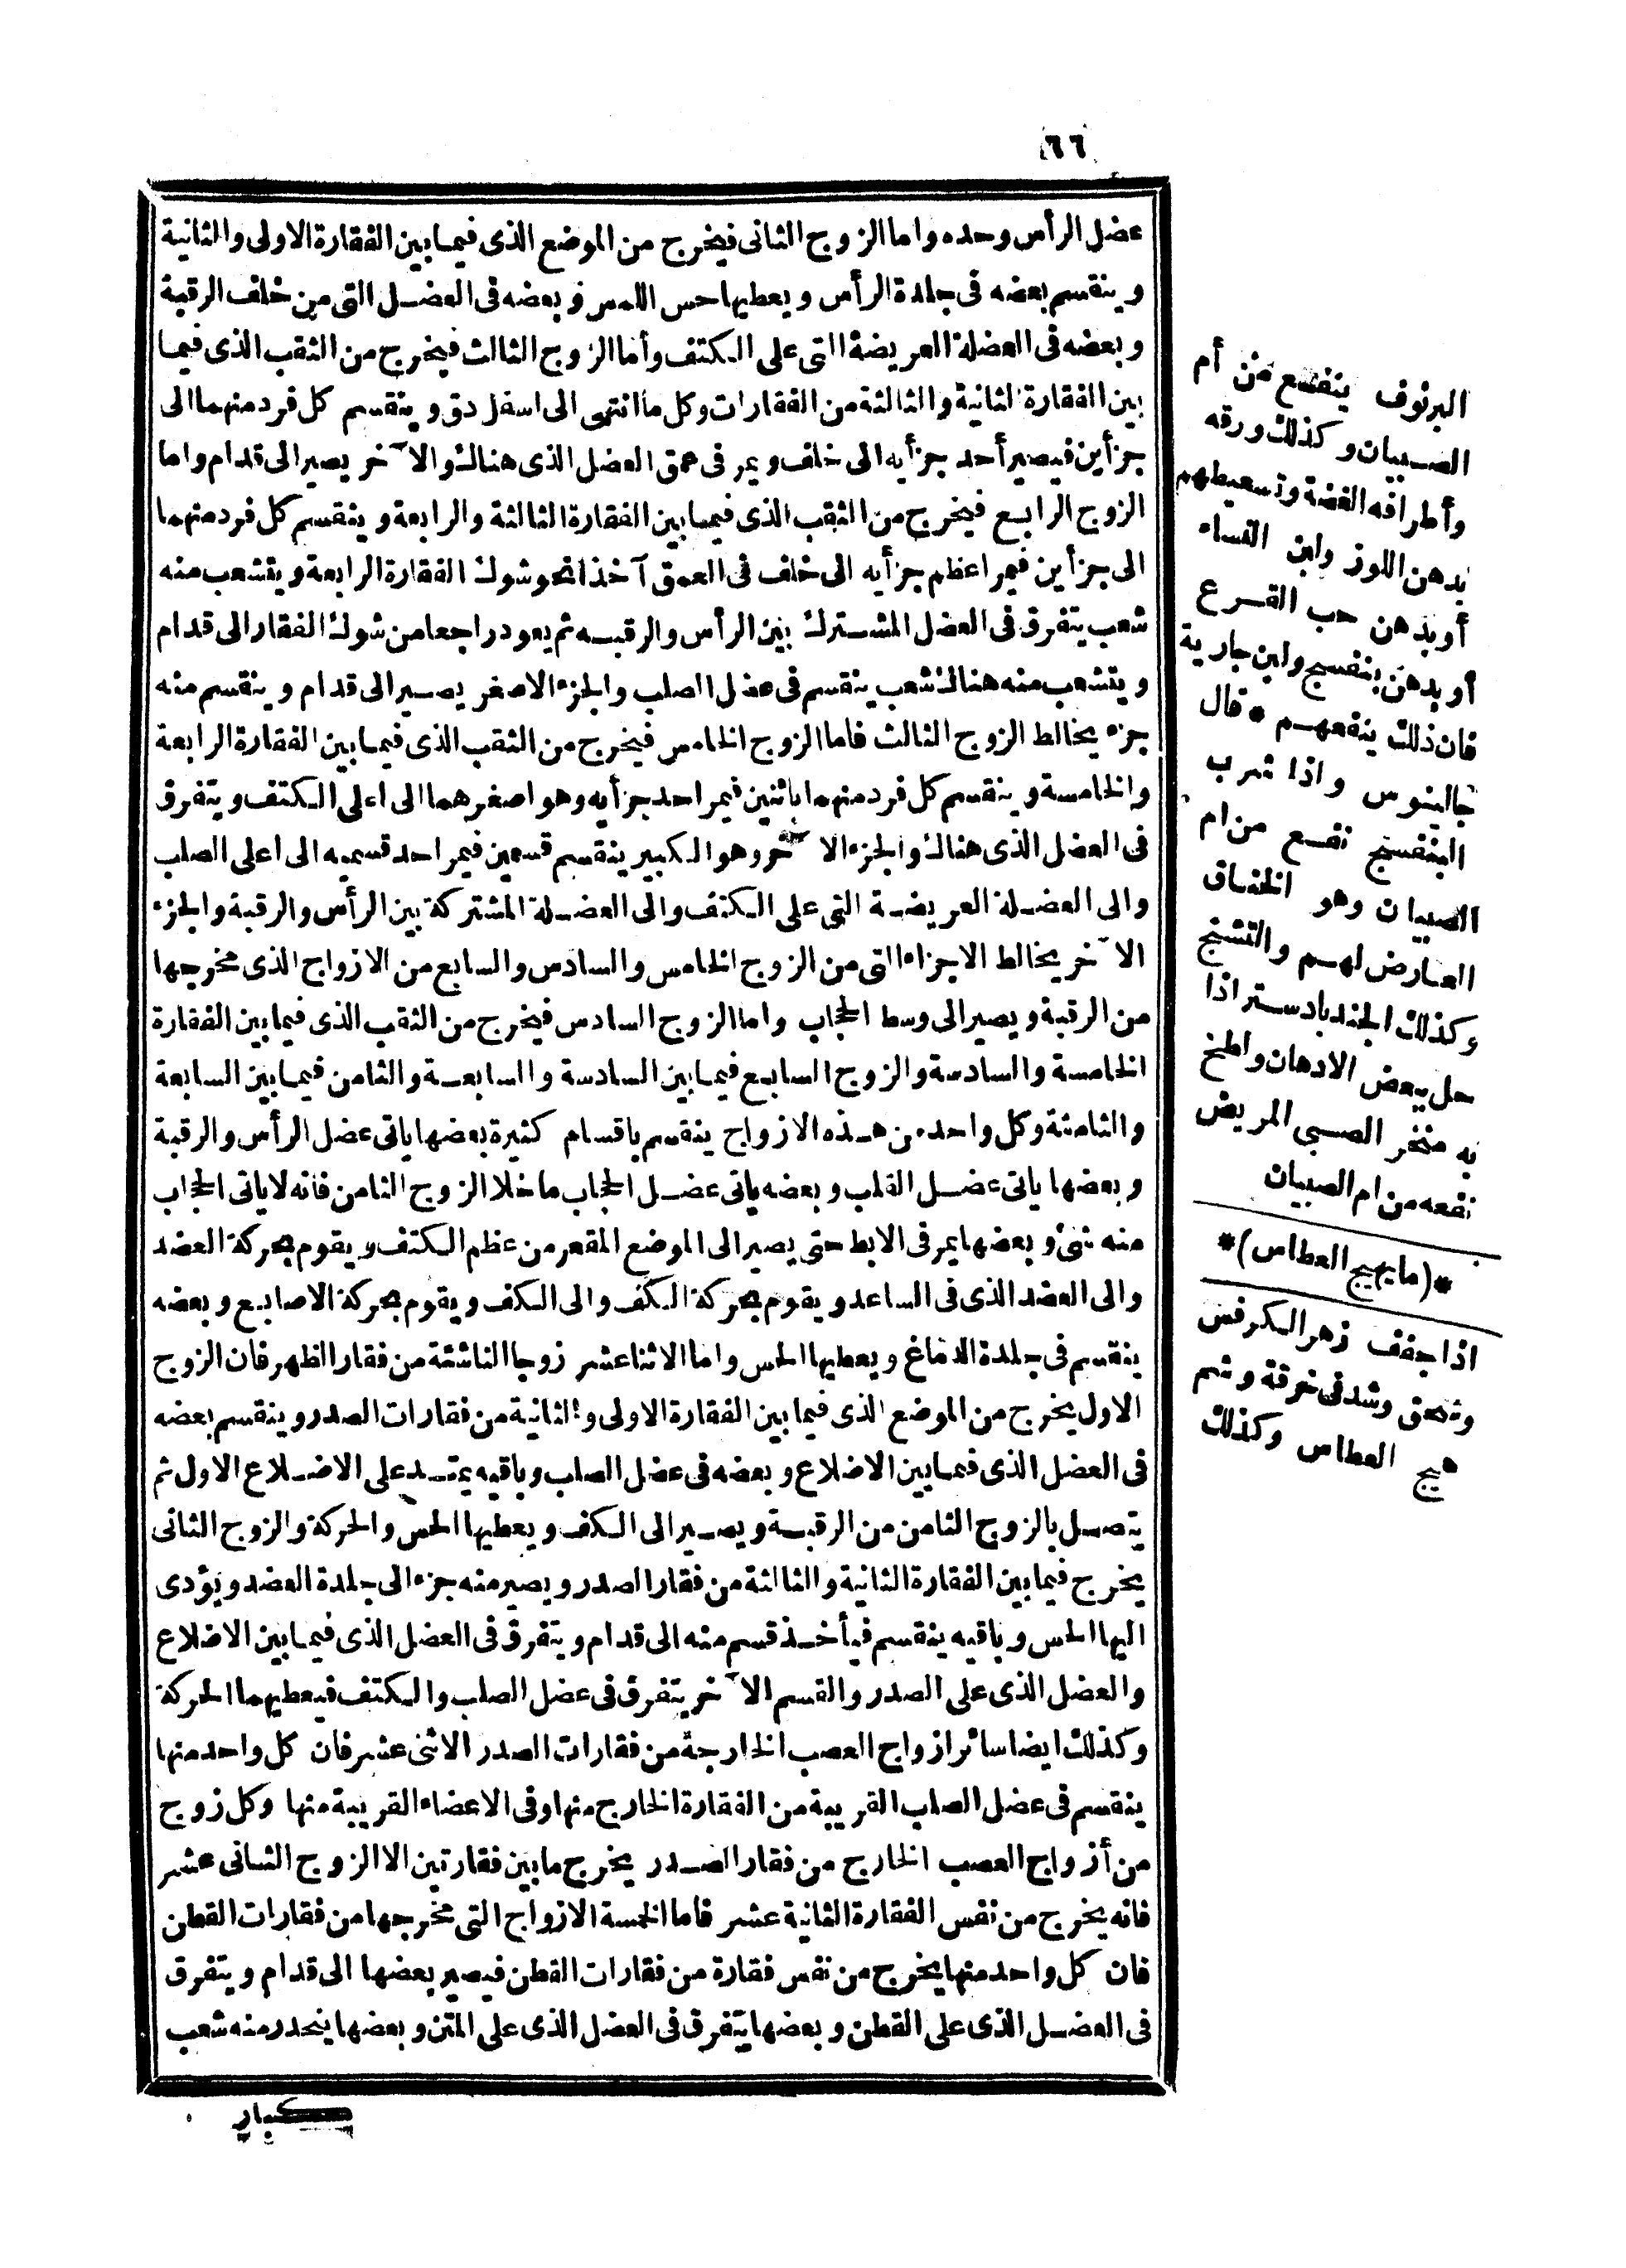 ٦٦
عضل الرأس وحده واما الزوج الثانى فيخرج من الموضع الذى فيما بين الفقارة الاولى والثانية
وينقسم بعضه فى جلدة الرأس ويعطيها حس اللمس وبعضه فى العضل التى من خلف الرقبة
وبعضه فى العضلة العريضة التى على الكتف وأما الزوج الثالث فيخرج من الثقب الذى فيما
بين الفقارة الثانية والثالثة من الفقارات وكل ما انتهى الى اسفل دق وينقسم كل فرد منهما الى
جزأين فيصير أحد جزأيه الى خلف ويمر فى عمق العضل الذى هنالك والآخر يصير الى قدام واما
الزوج الرابع فيخرج من الثقب الذى فيما بين الفقارة الثالثة والرابعة وينقسم كل فرد منهما
الى جزأين فيمر اعظم جزأيه الى خلف فى العمق آخذا نحو شوك الفقارة الرابعة ويتشعب منه
شعب يتفرق فى العضل المشترك بين الرأس والرقبه ثم يعود راجعا من شوك الفقار الى قدام
ويتشعب منه هنالك شعب ينقسم فى عضل الصلب والجزء الاصغر يصير الى قدام وينقسم منه
جزء يخالط الزوج الثالث فاما الزوج الخامس فيخرج من الثقب الذى فيما بين الفقارة الرابعة
والخامسة وينقسم كل فرد منهما باثنين فيمر احد جزأيه وهو اصغرهما الى اعلى الكتف ويتفرق
فى العضل الذى هنالك والجزء الآخر وهو الكبير ينقسم قسمين فيمر احد قسميه الى اعلى الصلب
والى العضلة العريضة التى على الكتف والى العضلة المشتركة بين الرأس والرقبة والجزء
الآخر يخالط الاجزاء التى من الزوج الخامس والسادس والسابع من الازواج الذى مخرجها
من الرقبة ويصير الى وسط الحجاب واما الزوج السادس فيخرج من الثقب الذى فيما بين الفقارة
الخامسة والسادسة والزوج السابع فيما بين السادسة والسابعة والثامن فيما بين السابعة
والثامنة وكل واحد من هذه الازواج ينقسم باقسام كثيرة بعضها ياتى عضل الرأس والرقبة
وبعضها ياتى عضل القلب وبعضه ياتى عضل الحجاب ما خلا الزوج الثامن فانه لا ياتى الحجاب
منه شئ وبعضها يمر فى الابط حتى يصير الى الموضع المقعر من عظم الكتف ويقوم بحركة العضد
والى العضد الذى فى الساعد ويقوم بحركة الكف والى الكف ويقوم بحركة الاصابع وبعضه
ينقسم فى جلدة الدماغ ويعطيها الحس واما الاثنا عشر زوجا الناشئة من فقار الظهر فان الزوج
الاول يخرج من الموضع الذى فيما بين الفقارة الاولى والثانية من فقارات الصدر وينقسم بعضه
فى العضل الذى فيما بين الاضلاع وبعضه فى عضل الصلب وباقيه يمتد على الاضلاع الاول ثم
يتصل بالزوج الثامن من الرقبة ويصير الى الكف ويعطيها الحس والحركة والزوج الثانى
يخرج فيما بين الفقارة الثانية والثالثة من فقار الصدر ويصير منه جزء الى جلدة العضد ويؤدى
اليها الحس وباقيه ينقسم فيأخذ قسم منه الى قدام ويتفرق فى العضل الذى فيما بين الاضلاع
والعضل الذى على الصدر والقسم الآخر يتفرق فى عضل الصلب والكتف فيعطيهما الحركة
وكذلك ايضا سائر ازواج العصب الخارجة من فقارات الصدر الاثنى عشر فان كل واحد منها
ينقسم فى عضل الصلب القريبة من الفقارة الخارج منها وفى الاعضاء القريبة منها وكل زوج
من أزواج العصب الخارج من فقار الصدر يخرج ما بين فقارتين الا الزوج الثانى عشر
فانه يخرج من نفس الفقارة الثانية عشر فاما الخمسة الازواج التى مخرجها من فقارات القطن
فان كل واحد منها يخرج من نفس فقارة من فقارات القطن فيصير بعضها الى قدام ويتفرق
فى العضل الذى على القطن وبعضها يتفرق فى العضل الذى على المتن وبعضها ينحدر منه شعب
كبار
البرنوف ينفع من أم
الصبيان وكذلك ورقه
وأطرافه الغضة وتسعيطهم
بدهن اللوز ولبن النساء
أو بدهن حب القرع
أو بدهن بنفسج ولبن جارية
فان ذلك ينفعهم * قال
جالينوس واذا شرب
البنفسج نفع من ام
الصبيان وهو الخناق
العارض لهم والتشنج
وكذلك الجندبادستر اذا
حل ببعض الادهان ولطخ
به منخر الصبى المريض
نفعه من ام الصبيان
*(ما يهيج العطاس)*
اذا جفف زهر الكرفس
وسحق وشد فى خرقة وشم
هيج العطاس وكذلك